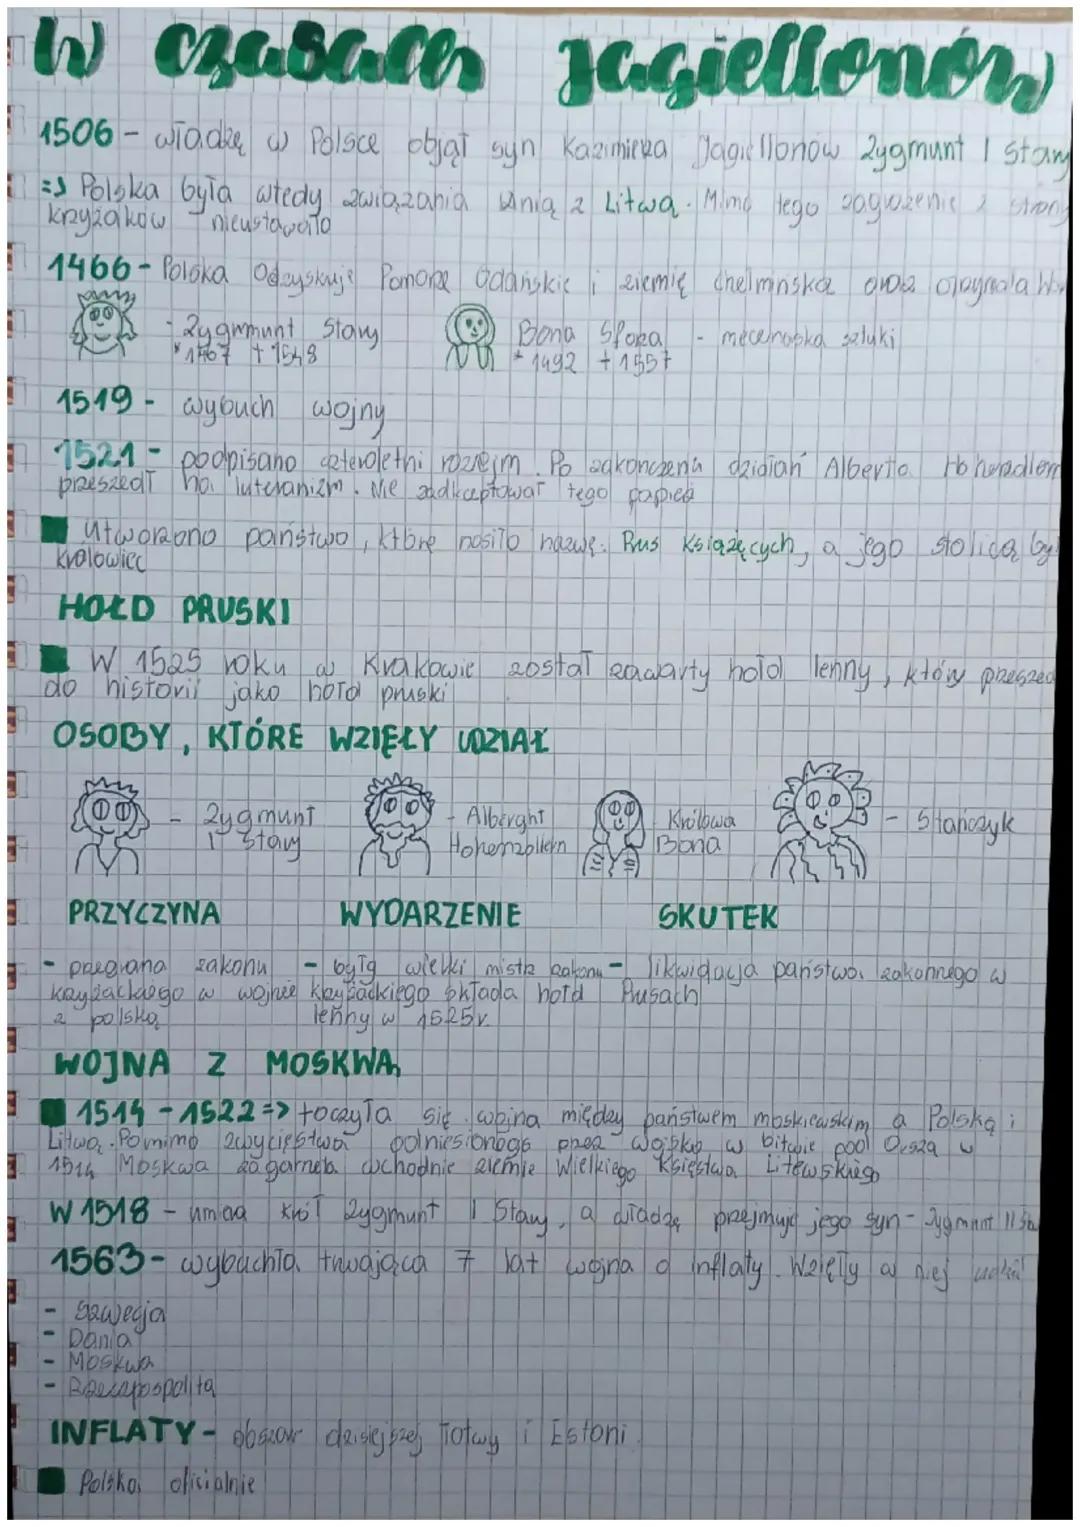 W czasach Jagiellonów
1506 - władzę w Polsce objął syn Kazimierza Jagiellonów Zygmunt I Stary
=> Polska była wtedy związania unią z Litwą. Mimo tego zagrożenie z strony
krzyżaków nieustawało
1466 - Polska Odzyskuje Pomorze Gdańskie i ziemię chełmińską oraz
- Zygmunt Stary
* 1467 + 1548
Bona Sforza - mecenaska sztuki
* 1492 + 1557
1519 - wybuch wojny
1521 - podpisano czteroletni rozejm. Po zakończeniu działań Alberta
przeszedł na luteranizm. Nie zadkceptował tego papież
Utworzono państwo, które nosiło nazwę: Prus Książęcych, a jego stolicą był
królowiec
HOŁD PRUSKI
W 1525 roku w Krakowie został zawarty hołd lenny, który przeszed
do historii jako hołd pruski
OSOBY, KTÓRE WZIĘŁY UDZIAŁ
- Zygmunt
I Stary
- Albreght
Hohenzollern
Królowa
Bona
- Stańczyk
PRZYCZYNA WYDARZENIE SKUTEK
- przegrana zakonu - były wielki mistrz zakonu - likwidacja państwa zakonnego w
krzyżackiego w wojnie krzyżackiego składa hołd Prusach
z polską lenny w 1525r.
WOJNA Z MOSKWĄ
1514 - 1522 => toczyła się wojna między państwem moskiewskim a Polską i
Litwą. Pomimo zwycięstwa odniesionego przez wojsko w bitwie pod Orszą w
1514 Moskwa zagarnęła wschodnie ziemie Wielkiego Księstwa Litewskiego
W 1518 - umiera król Zygmunt I Stary, a władzę przejmuje jego syn - Zygmunt II
1563 - wybuchła trwająca 7 lat wojna o inflaty. Wzięły w niej udział
- Szwecja
- Dania
- Moskwa
- Rzeczpospolita
INFLATY - obszar dzisiejszej Łotwy i Estoni
Polska oficialnie